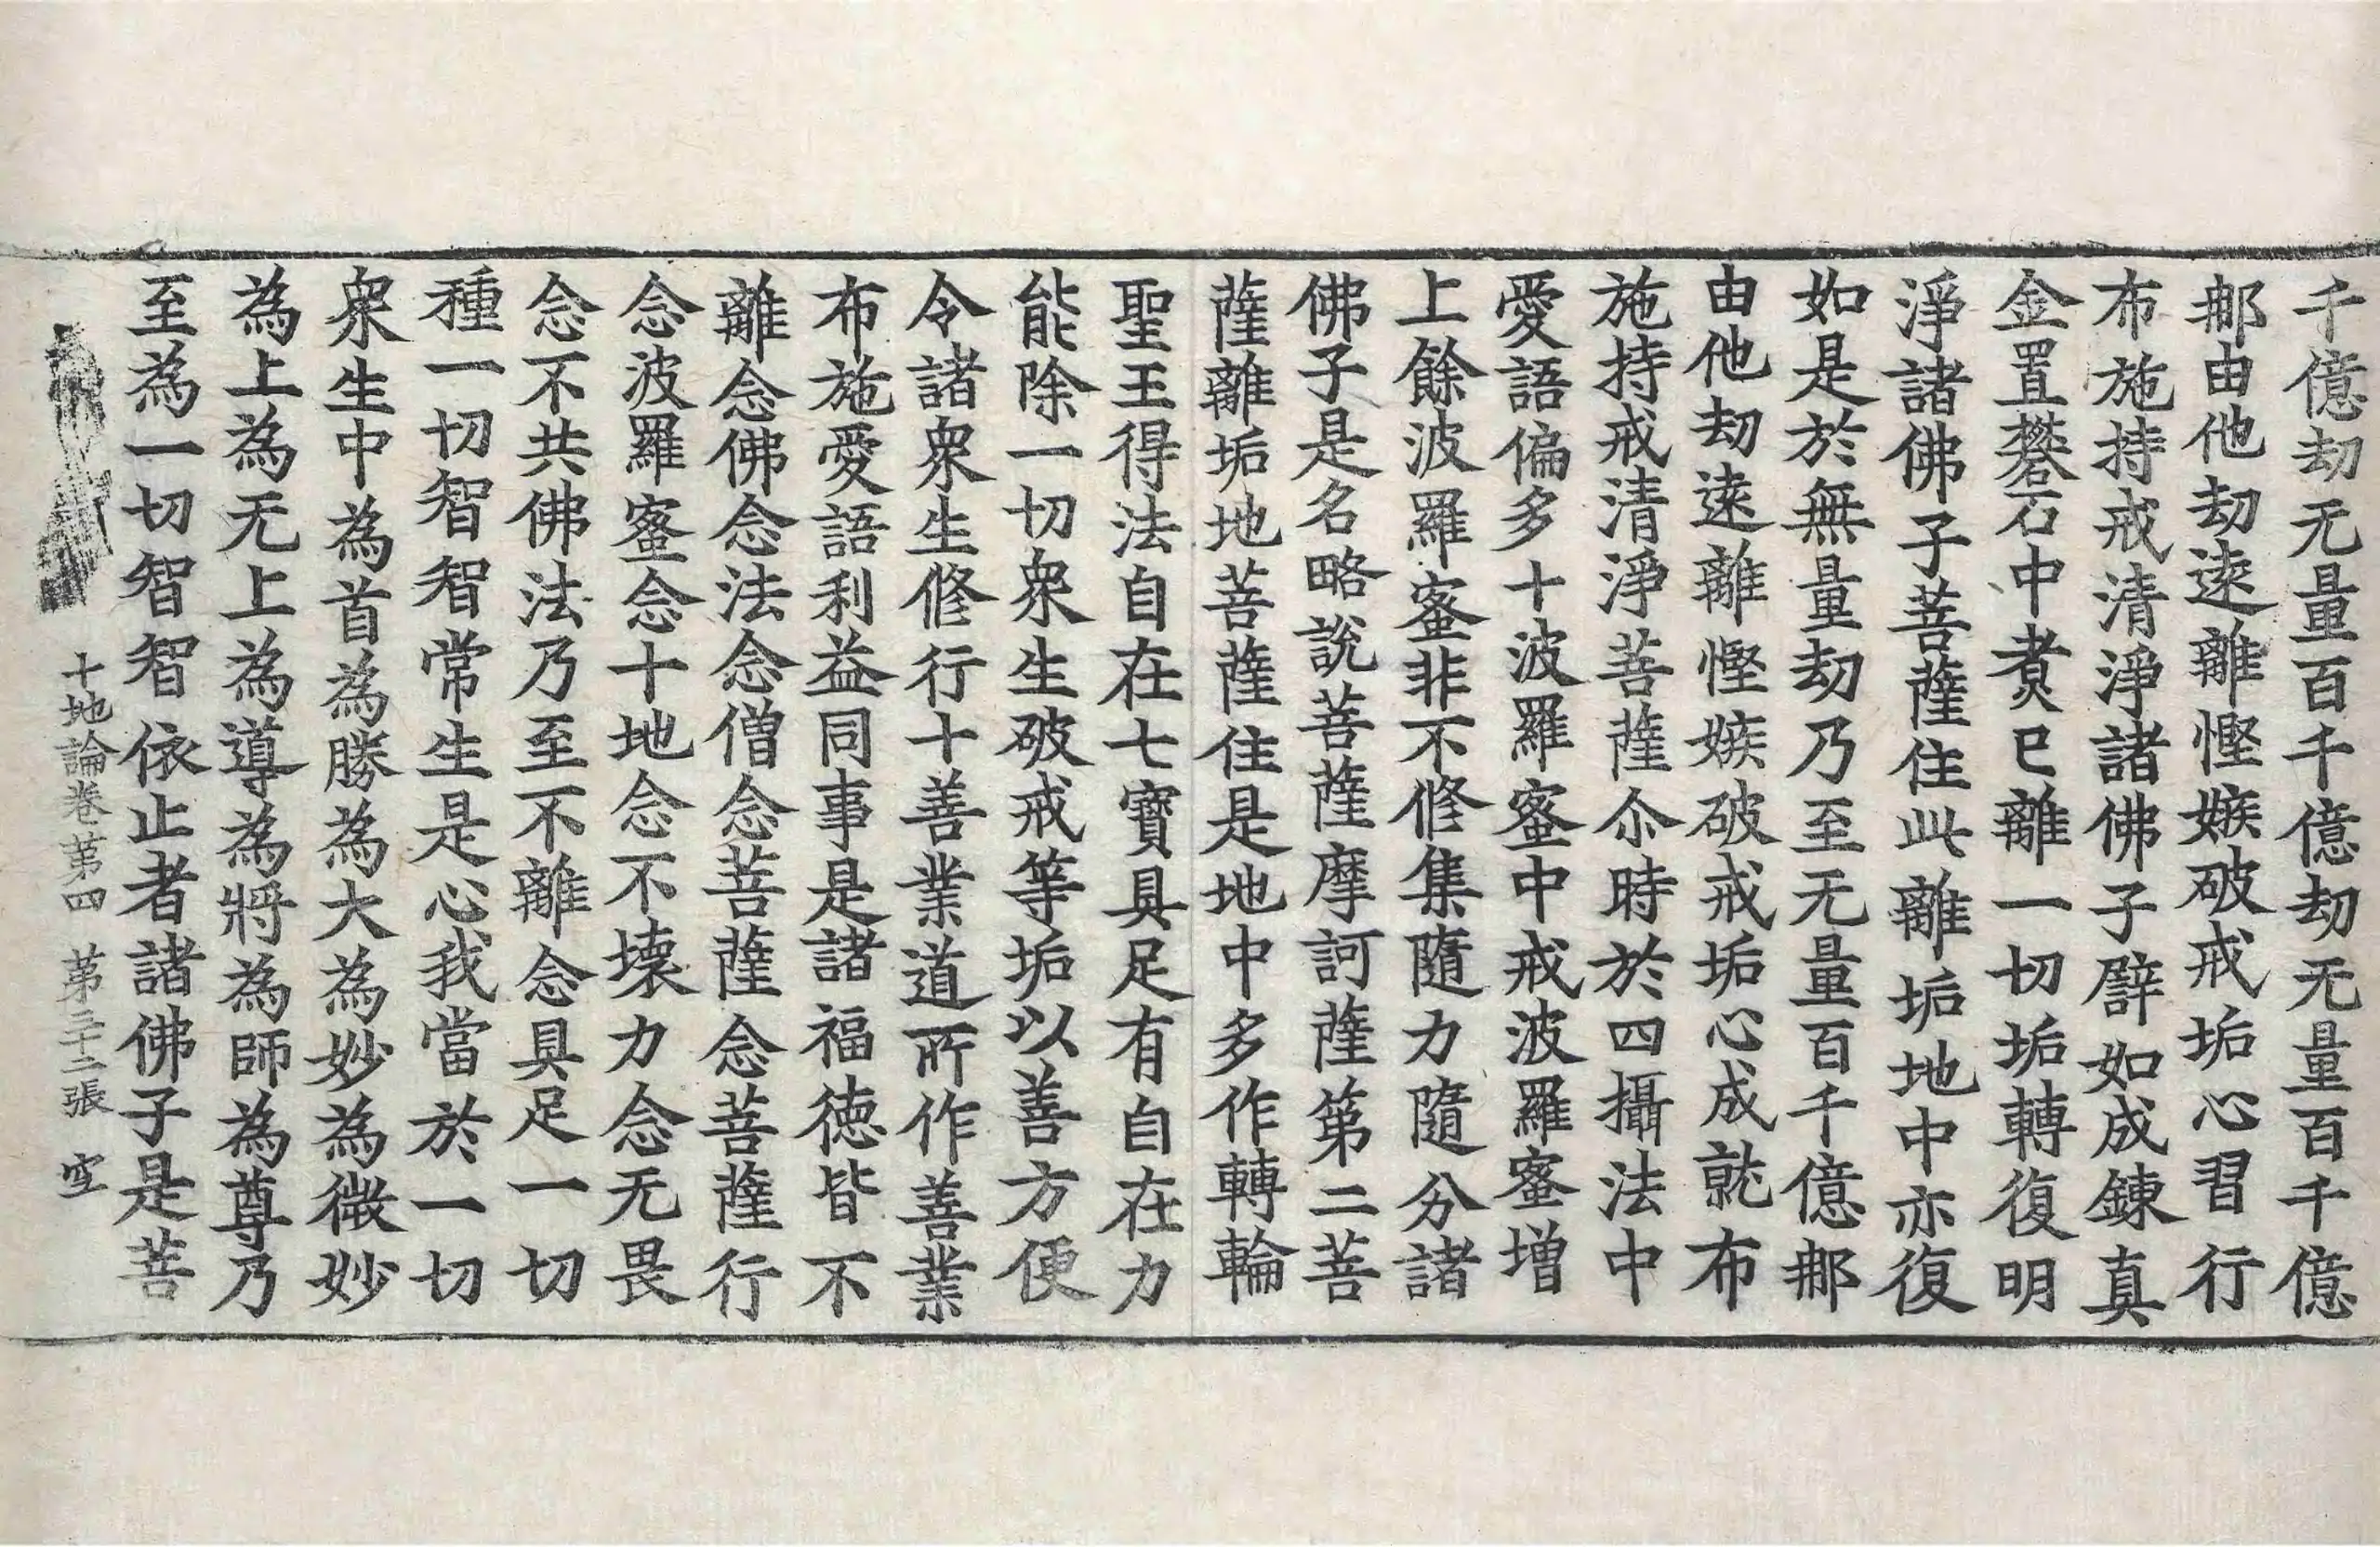 千億劫无量百千億劫无量百千億
𨚗由他劫逺離慳嫉破戒垢心習行
布施持戒清淨諸佛子辟如成鍊真
金置礬石中煑已離一切垢轉復明
淨諸佛子菩薩住此離垢地中亦復
如是於無量劫乃至无量百千億𨚗
由他劫逺離慳嫉破戒垢心成就布
施持戒清淨菩薩尒時於四攝法中
愛語偏多十波羅蜜中戒波羅蜜増
上餘波羅蜜非不修集隨力隨分諸
佛子是名略說菩薩摩訶薩第二菩
薩離垢地菩薩住是地中多作轉輪
聖王得法自在七寳具足有自在力
能除一切衆生破戒等垢以善方便
令諸衆生修行十善業道所作善業
布施愛語利益同事是諸福徳皆不
離念佛念法念僧念菩薩念菩薩行
念波羅蜜念十地念不壞力念无畏
念不共佛法乃至不離念具足一切
種一切智智常生是心我當於一切
衆生中為首為勝為大為妙為微妙
為上為无上為導為將為師為尊乃
至為一切智智依止者諸佛子是菩
十地論卷第四 第三十二張 空